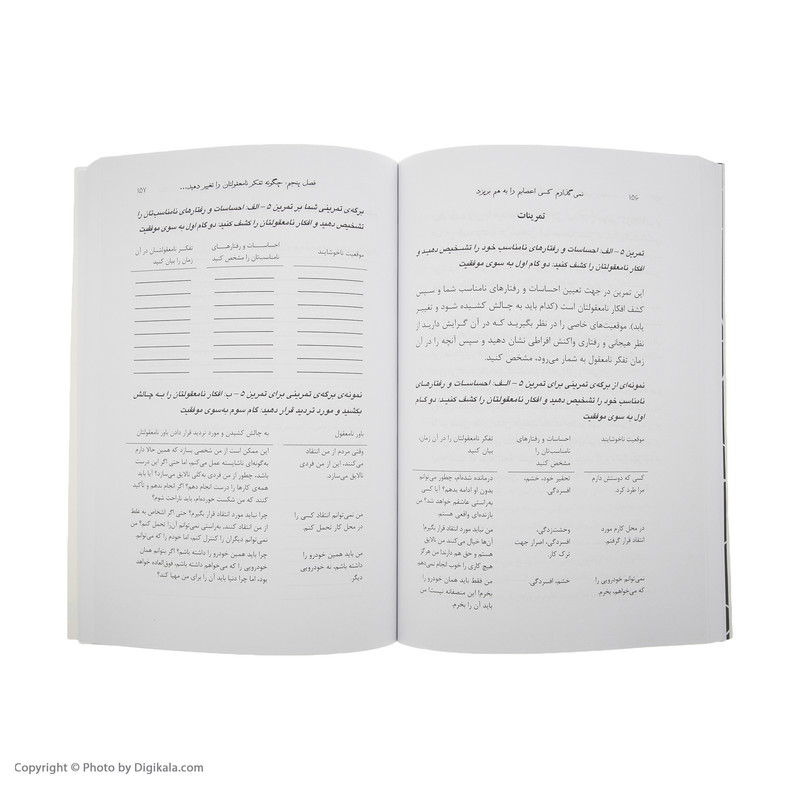 ۱۵۶
نمی‌گذارم کسی اعصابم را به هم بریزد
تمرینات
تمرین ۵ – الف: احساسات و رفتارهای نامناسب خود را تشخیص دهید و
افکار نامعقولتان را کشف کنید: دو گام اول به سوی موفقیت
این تمرین در جهت تعیین احساسات و رفتارهای نامناسب شما و سپس
کشف افکار نامعقولتان است (کدام باید به چالش کشیده شود و تغییر
یابد). موقعیت‌های خاصی را در نظر بگیرید که در آن گرایش دارید از
نظر هیجانی و رفتاری واکنش افراطی نشان دهید و سپس آنچه را در آن
زمان تفکر نامعقول به شمار می‌رود، مشخص کنید.
نمونه‌ای از برگه‌ی تمرینی برای تمرین ۵ – الف: احساسات و رفتارهای
نامناسب خود را تشخیص دهید و افکار نامعقولتان را کشف کنید: دو گام
اول به سوی موفقیت
موقعیت ناخوشایند
احساسات و رفتارهای
نامناسب‌تان را
مشخص کنید
تفکر نامعقولتان را در آن زمان،
بیان کنید
کسی که دوستش دارم
مرا طرد کرد.
تحقیر خود، خشم،
افسردگی.
درمانده شده‌ام، چطور می‌توانم
بدون او ادامه بدهم؟ آیا کسی
به‌راستی عاشقم خواهد شد؟ من
بازنده‌ای واقعی هستم.
در محل کارم مورد
انتقاد قرار گرفتم.
وحشت‌زدگی،
افسردگی، اصرار جهت
ترک کار.
من نباید مورد انتقاد قرار بگیرم!
آن‌ها خیال می‌کنند من نالایق
هستم و حق هم دارند! من هرگز
هیچ کاری را خوب انجام نمی‌دهم
نمی‌توانم خودرویی را
که می‌خواهم، بخرم.
خشم، افسردگی.
من فقط باید همان خودرو را
بخرم! این منصفانه نیست! من
باید آن را بخرم.
فصل پنجم: چگونه تفکر نامعقولتان را تغییر دهید...
۱۵۷
برگه‌ی تمرینی شما بر تمرین ۵ – الف: احساسات و رفتارهای نامناسب‌تان را
تشخیص دهید و افکار نامعقولتان را کشف کنید: دو گام اول به سوی موفقیت
موقعیت ناخوشایند
احساسات و رفتارهای
نامناسب‌تان را مشخص کنید
تفکر نامعقولتان در آن
زمان را بیان کنید
نمونه‌ی از برگه‌ی تمرینی برای تمرین ۵ – ب: افکار نامعقولتان را به چالش
بکشید و مورد تردید قرار دهید: گام سوم به‌سوی موفقیت
باور نامعقول
به چالش کشیدن و مورد تردید قرار دادن باور نامعقولتان
وقتی مردم از من انتقاد
می‌کنند، این از من فردی
نالایق می‌سازد.
این ممکن است از من شخصی بسازد که همین حالا دارم
به‌گونه‌ای ناشایسته عمل می‌کنم، اما حتی اگر این درست
باشد، چطور از من فردی به‌کلی نالایق می‌سازد؟ آیا باید
همه‌ی کارها را درست انجام دهم؟ اگر انجام ندهم و تأکید
کنند که من شکست خورده‌ام، باید ناراحت شوم؟
من نمی‌توانم انتقاد کسی را
در محل کار تحمل کنم.
چرا نباید مورد انتقاد قرار بگیرم؟ حتی اگر اشخاص به غلط
از من انتقاد کنند، به‌راستی نمی‌توانم آن‌را تحمل کنم؟ من
نمی‌توانم دیگران را کنترل کنم، اما خودم را که می‌توانم.
من باید همین خودرو را
داشته باشم، نه خودرویی
دیگر.
چرا باید همین خودرو را داشته باشم؟ اگر بتوانم همان
خودرویی را که می‌خواهم داشته باشم، فوق‌العاده خواهد
بود، اما چرا دنیا باید آن را برای من مهیا کند؟
Copyright © Photo by Digikala.com